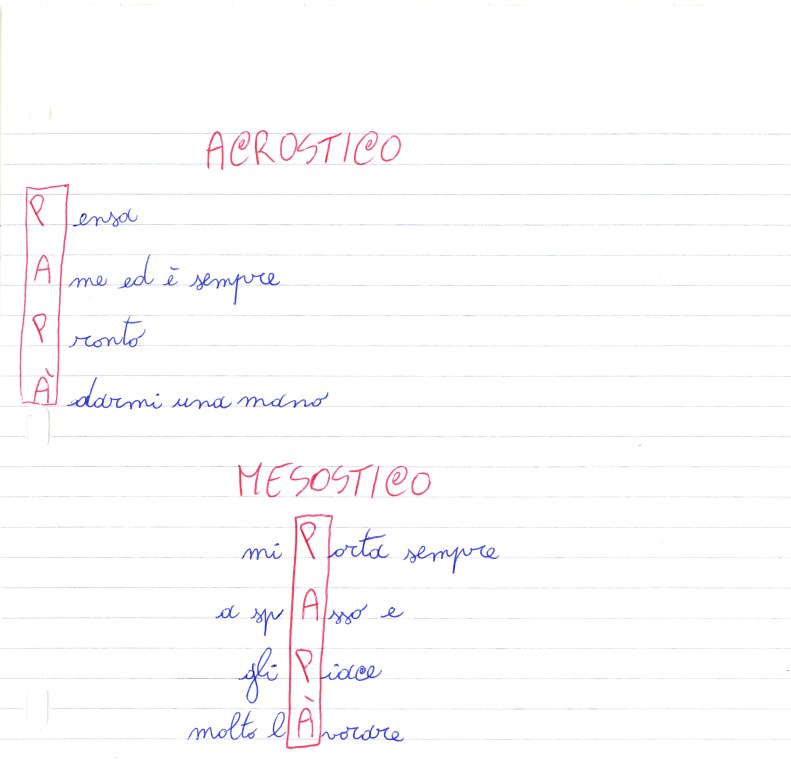 ACROSTICO
Pensa
A me ed è sempre
Pronto
À darmi una mano
MESOSTICO
mi Porta sempre
a spAsso e
gli Piace
molto lÀvorare